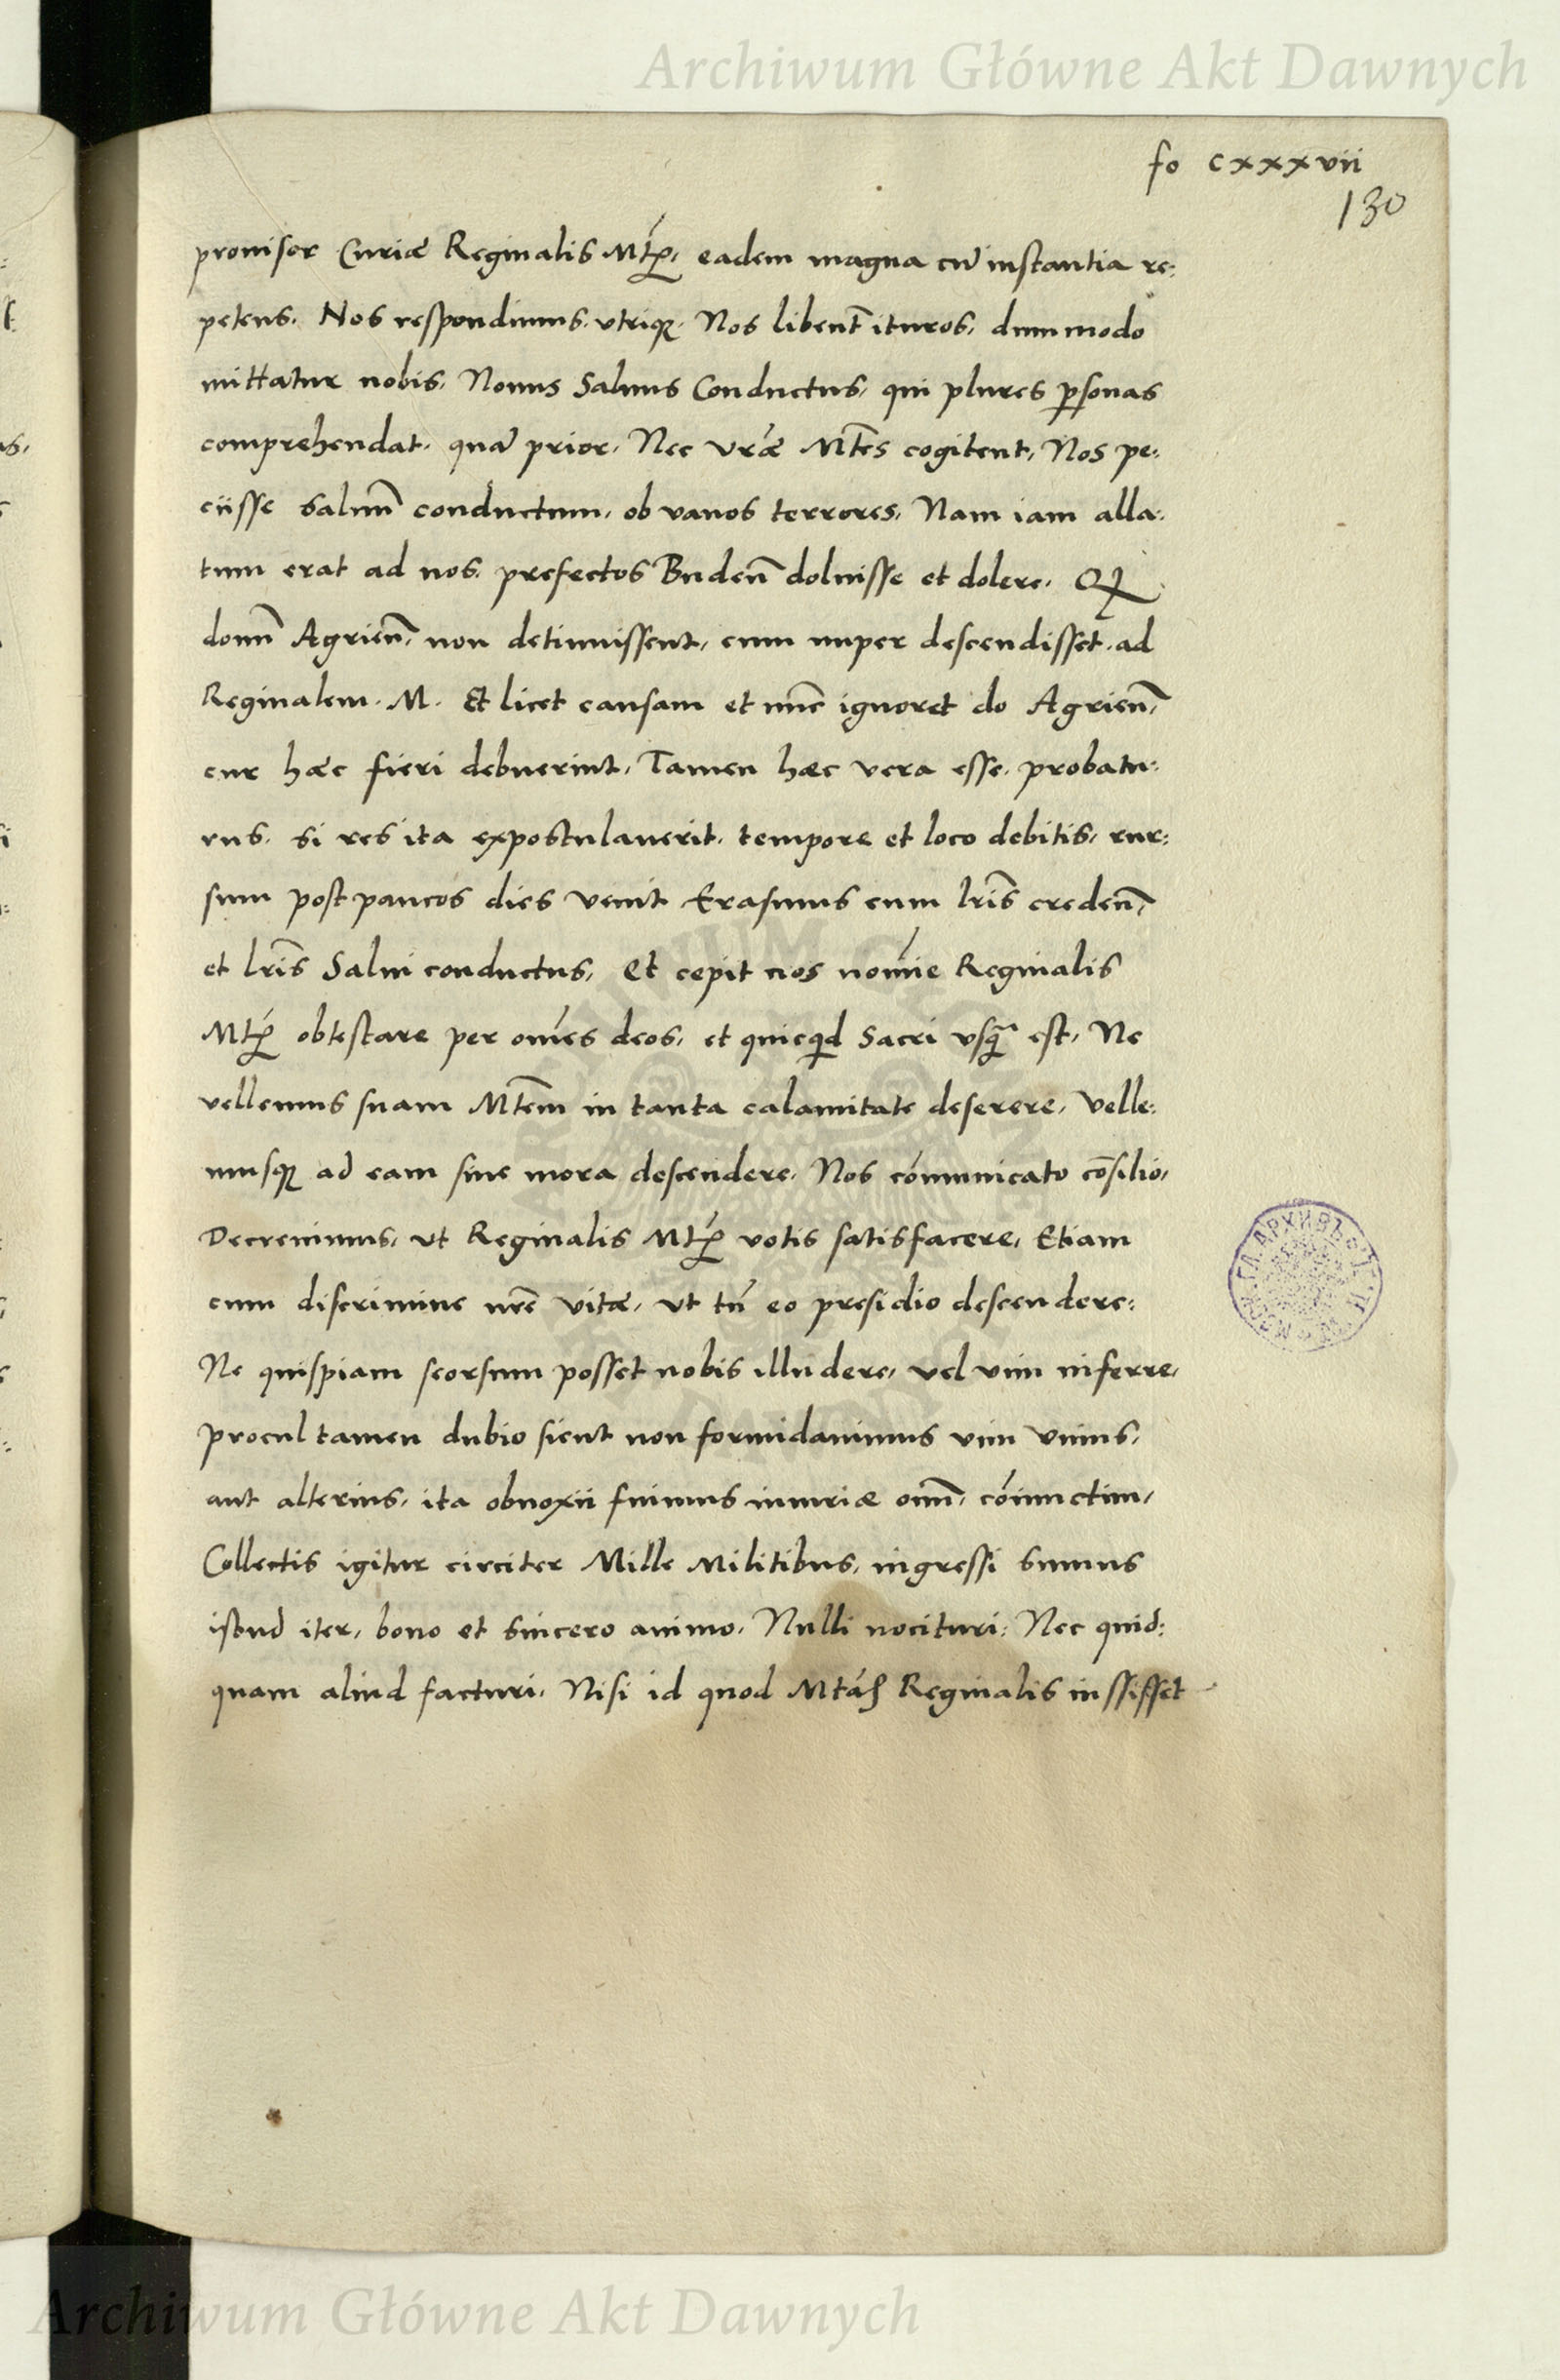 Archiwum Główne Akt Dawnych
fo cxxxvii
130
prouisor Curiæ Reginalis Mtꝭ, eadem magna cū instantia re:
petens. Nos respondimus vtriqꝫ. Nos libent̄ ituros, dummodo
mittatur nobis, Nouus Saluus Conductus, qui plures ꝑsonas
comprehendat, quā prior, Nec Vræ Mtēs cogitent, Nos pe:
ciisse saluū conductum, ob vanos terrores, Nam iam alla:
tum erat ad nos, prefectos Budeñ doluisse et dolere, Qꝫ
domū Agrieñ, non detinuissent, cum nuper descendisset ad
Reginalem M. Et licet causam et nūc ignoret do Agrieñ,
cur hæc fieri debuerint, Tamen hæc vera esse, probatu:
rus, si res ita expostulauerit, tempore et loco debitis, rur:
sum post paucos dies venit Erasmus cum lrīs credeñ,
et lrīs Salui conductus, Et cepit nos nomīe Reginalis
Mtꝭ obtestare per omēs deos, et quicqd Sacri vsqꝫ est, Ne
vellemus suam Mtēm in tanta calamitate deserere, Velle:
musqꝫ ad eam sine mora descendere, Nos cōmunicato cōsilio,
Decreuimus, vt Reginalis Mtꝭ votis satisfacere, Etiam
cum discrimine nrē vitæ, vt tn̄ eo presidio descendere:
Ne quispiam seorsum posset nobis illudere, vel vim inferre,
procul tamen dubio sicut non formidauimus vim vnius,
aut alterius, ita obnoxii fuimus iniuriæ omū, cōiunctim,
Collectis igitur circiter Mille Militibus, ingressi sumus
istud iter, bono et sincero animo, Nulli nocituri: Nec quid:
quam aliud facturi, Nisi id quod Mtās Reginalis iussisset
Archiwum Główne Akt Dawnych